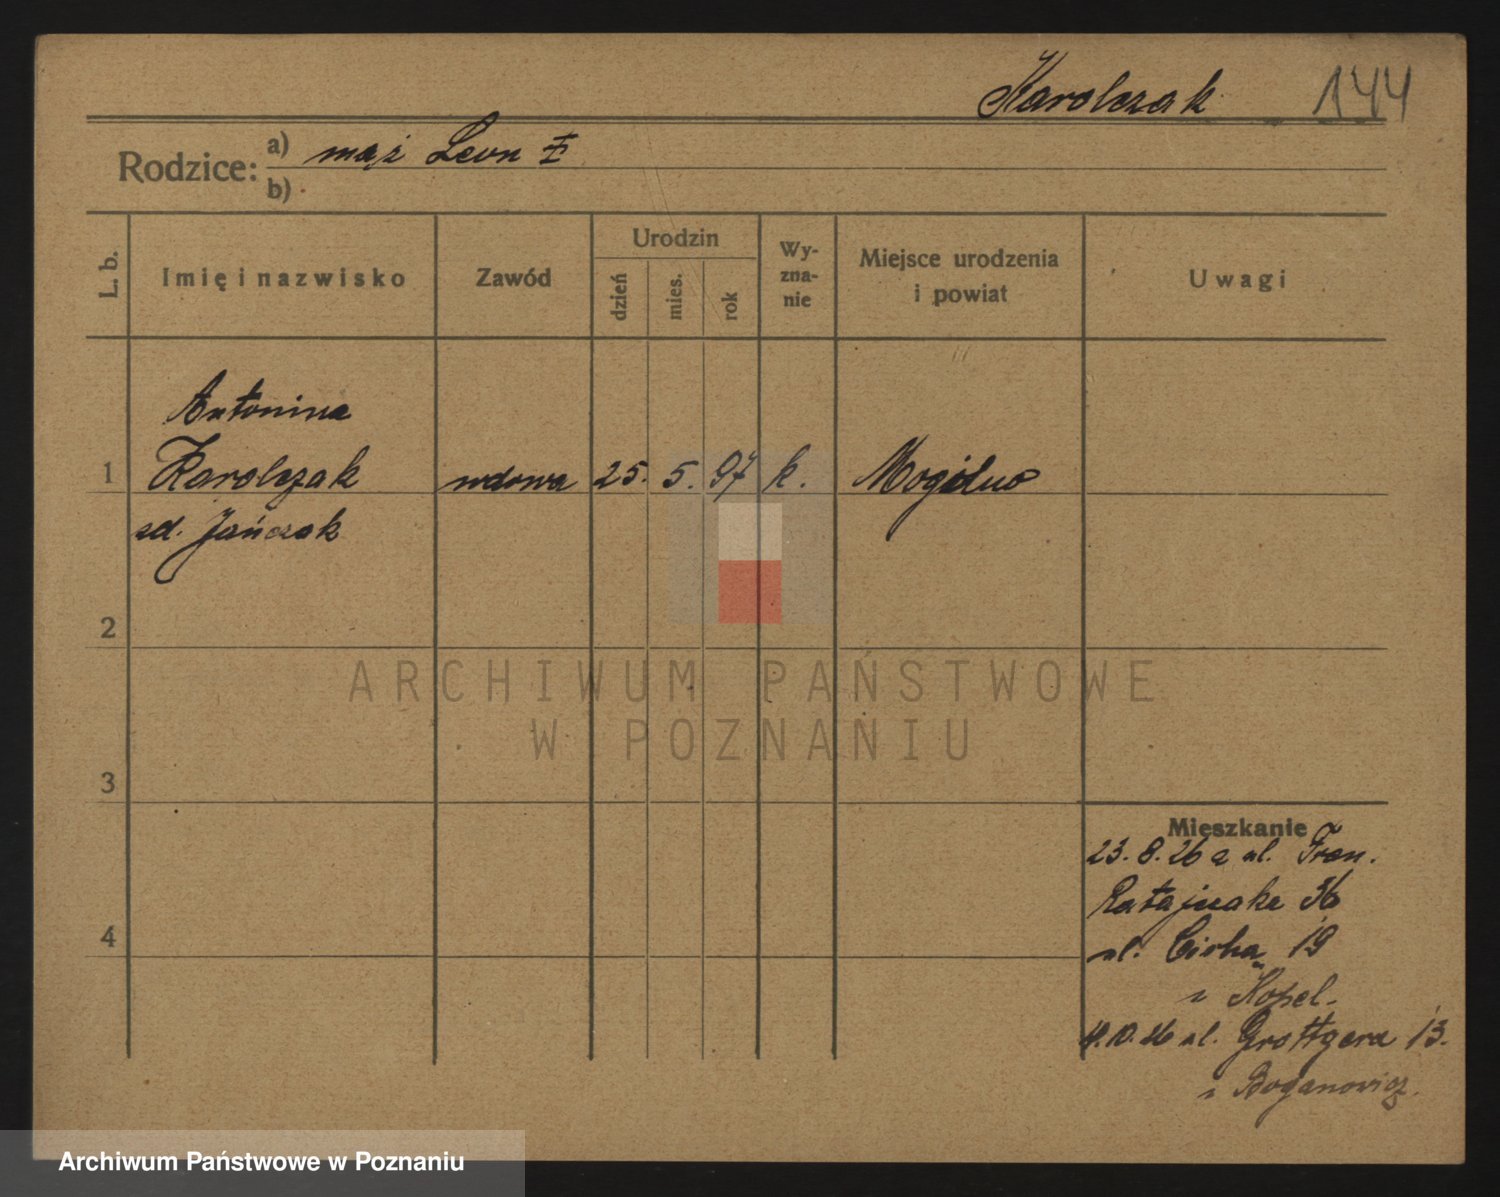 Karolczak 144
Rodzice: a) mąż Leon ‡
b)
L. b. Imię i nazwisko Zawód Urodzin dzień mies. rok Wy-zna-nie Miejsce urodzenia i powiat Uwagi
Antonina
1 Karolczak wdowa 25. 5. 97 k. Mogilno
zd. Jańczak
2
ARCHIWUM PAŃSTWOWE
W POZNANIU
3
Mieszkanie
23. 8. 26 z ul. Fran.
Ratajczaka 36
4
ul. Cicha 19
Kopel.
ul. Grottgera 13.
Boganowicz.
Archiwum Państwowe w Poznaniu